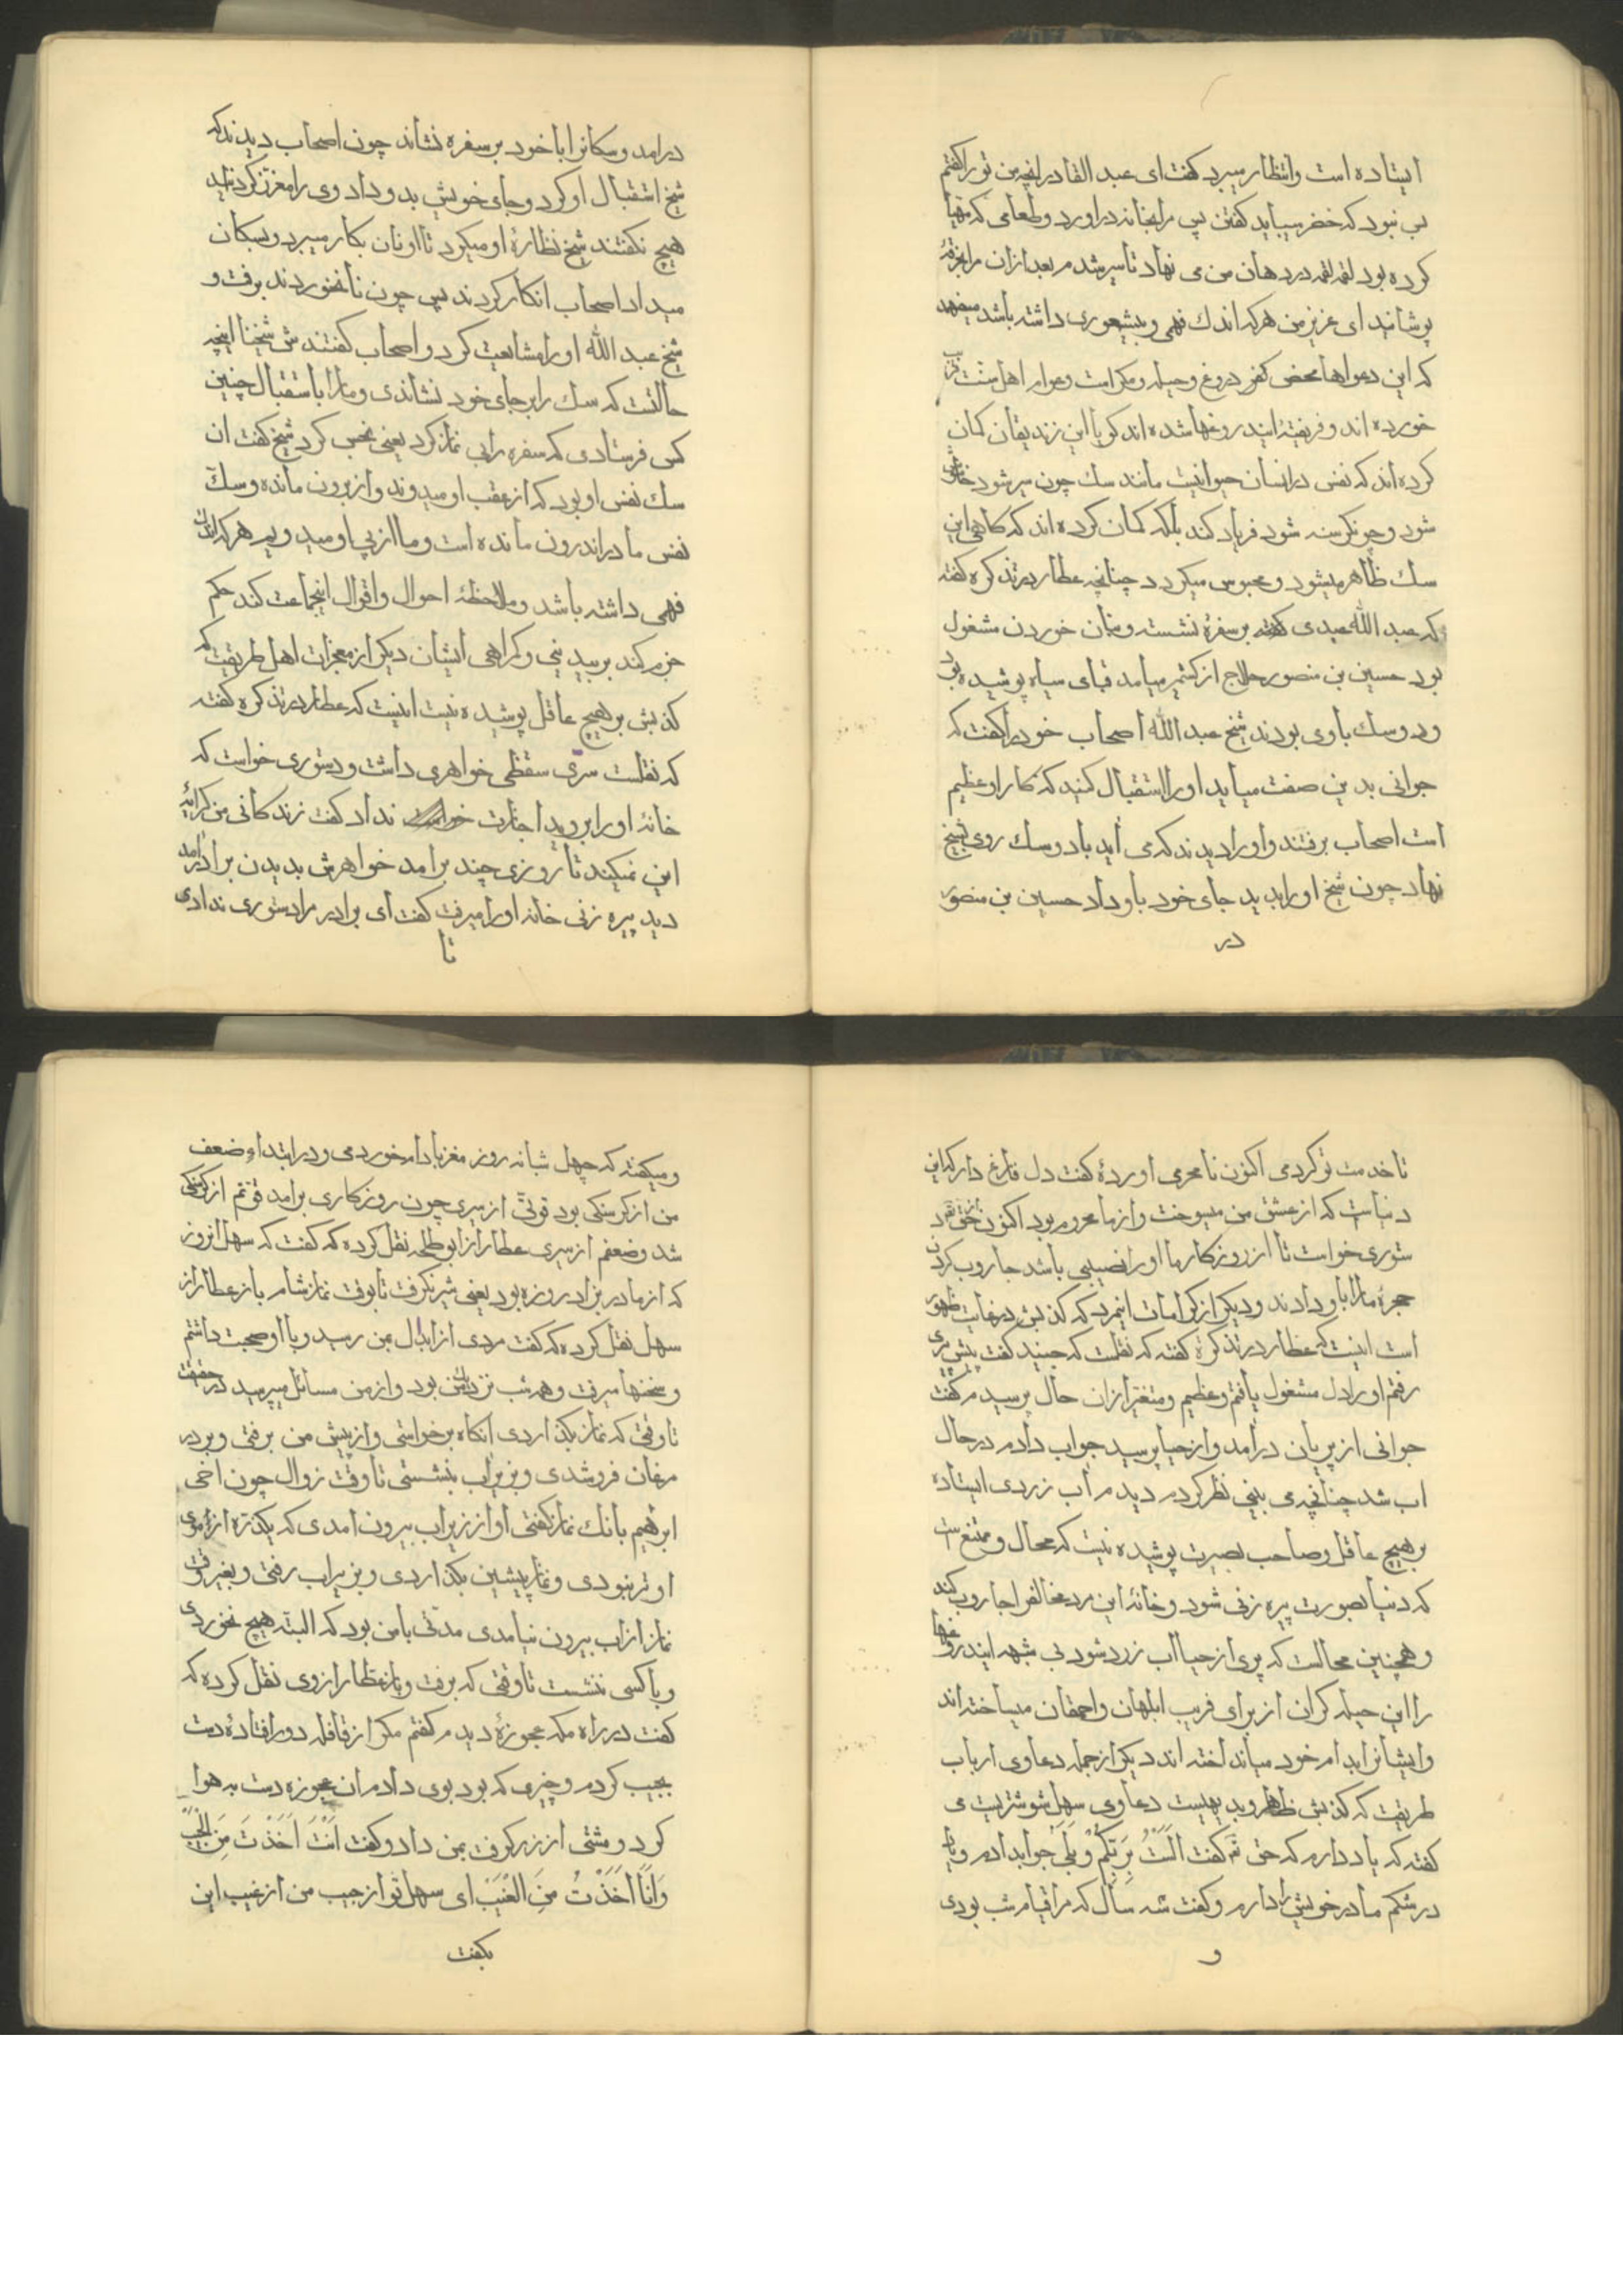 ایستاده است وانتظار میبرد گفت ای عبد القادر انچه من تو را گفتم
بس نبود که خضر میباید گفتن پس مرا بخانه دراورد وطعامی که مهیا
کرده بود لقمه لقمه در دهان من می نهاد تا سیر شدم بعد از ان مرا خرقه
پوشانید ای عزیز من هر که اندك فهمی وشعوری داشته باشد میفهمد
که این دعواها محض کفر و دروغ وحیله ومکر است وعوام اهل سنت فریب
خورده اند وفریفتۀ این دروغها شده اند گویا این زندیقان گمان
کرده اند که نفس در انسان حیوانیست مانند سك چون سیر شود خاموش
شود وچون گرسنه شود فریاد کند بلکه گمان کرده اند که گاهی این
سك ظاهر میشود ومحبوس میگردد چنانچه عطار در تذکره گفته
که عبد الله بر سفرۀ نشسته وبنان خوردن مشغول
بود حسین بن منصور حلاج از کشمیر میامد قبای سیاه پوشیده بود
ودو سك باوی بودند شیخ عبد الله اصحاب خود را گفت که
جوانی بدین صفت میاید او را استقبال کنید که کار او عظیم
است اصحاب برفتند واو را دیدند که می اید با دو سك روی بشیخ
نهاد چون شیخ او را بدید جای خود باو داد حسین بن منصور
در
درامد وسکانرا با خود بر سفره نشاند چون اصحاب دیدند که
شیخ استقبال او کرد وجای خویش بدو داد وی را معزز گردانید
هیچ نکفتند شیخ نظارۀ او میکرد تا او نان بکار میبرد وبسکان
میداد اصحاب انکار کردند پس چون نان خوردند برفت و
شیخ عبد الله او را مشایعت کرد واصحاب گفتندش شیخنا اینچه
حالتست که سك را بر جای خود نشاندی وما را باستقبال چنین
کس فرستادی که سفره را بی نماز کرد یعنی نجس کرد شیخ گفت ان
سك نفس او بود که از عقب او میدوند واز برون مانده وسك
نفس ما در اندرون مانده است وما از پی او میدویم هر که اندك
فهمی داشته باشد وملاحظۀ احوال واقوال اینجماعت کند حکم
جزم کند بر بیدینی وگمراهی ایشان دیگر از معجزات اهل طریقت که
کذبش بر هیچ عاقل پوشیده نیست اینست که عطار در تذکره گفته
که نقلست سری سقطی خواهری داشت ودستوری خواست که
خانۀ او را بروید اجازت نداد گفت زندگانی من کرایۀ
این نمیکند تا روزی چند برامد خواهرش بدیدن برادر امد
دید پیره زنی خانه او را میرفت گفت ای برادر مرا دستوری ندادی
تا
تا خدمت تو کردمی اکنون نامحرمی اوردۀ گفت دل فارغ دار که این
دنیاست که از عشق من میسوخت واز ما محروم بود اکنون از حق د
ستوری خواست تا از روزگار ما او را نصیبی باشد جاروب کردن
حجرۀ ما را باو دادند ودیگر از کرامات اینمرد که کذبش در غایت ظهور
است اینست که عطار در تذکره گفته که نقلست که جنید گفت پیش سری
رفتم او را دل مشغول یافتم وعظیم ومتغیر از ان حال پرسیدم گفت
جوانی از پریان درامد واز حیا پرسید جواب دادم در حال
اب شد چنانچه می بینی نظر کردم دیدم اب زردی ایستاده
بر هیچ عاقل وصاحب بصیرت پوشیده نیست که محال وممتنع است
که دنیا بصورت پیره زنی شود وخانۀ این مرد مخالف را جاروب کند
وهمچنین محالست که پری از حیا اب زرد شود بی شبهه این دروغها
را این حیله کران از برای فریب ابلهان واحمقان میساخته اند
وایشانرا بدام خود میانداخته اند دیگر از جمله دعاوی ارباب
طریقت که کذبش ظاهر وبدیهیست دعاوی سهل شوشتریست می
گفته که یاد دارم که حق تعه گفت اَلَسْتُ بِرَبِّکُمْ وبَلی جواب دادم ویاد
در شکم مادر خویش را دارم وگفت سه ساله که مرا قیام شب بودی
و
ومیکفته که چهل شبانه روز مغز بادام خوردمی ودر ابتداء ضعف
من از گرسنگی بود قوتی از سیری چون روزگاری برامد قوتم از گرسنگی
شد وضعفم از سیری عطار از ابو طلحه نقل کرده که گفت که سهل انروز
که از مادر بزاد روزه بود یعنی شیر نگرفت تا بوقت نماز شام باز عطار از
سهل نقل کرده که گفت مردی از ابدال بمن رسید وبا او صحبت داشتم
وسخنها میرفت وهر شب نزدیك من بود واز من مسائل میپرسید در حقیقت
تا وقتی که نماز بگذاردی انگاه برخواستی واز پیش من برفتی وبر در
مرغان فرو شدی وبزیر اب بنشستی تا وقت زوال چون اخی
ابرهیم بانك نماز گفتی او از زیر اب بیرون امدی که یکذره از موی
او تر نبودی ونماز پیشین بگذاردی وبزیر اب رفتی وبغیر وقت
نماز از اب بیرون نیامدی مدتی با من بود که البته هیچ نخوردی
وبا کسی ننشست تا وقتی که برفت وباز عطار از وی نقل کرده که
گفت در راه مکه عجوزۀ دیدم گفتم مگر از قافله دور افتادۀ دست
بجیب کردم وچیزی که بود بوی دادم ان عجوزه دست به هوا
کرد ومشتی از زر گرفت بمن داد وگفت اَنْتَ اَخَذْتَ مِنَ الجَیْبِ
وَاَنَا اَخَذْتُ مِنَ الغَیْبِ ای سهل تو از جیب من از غیب این
بگفت